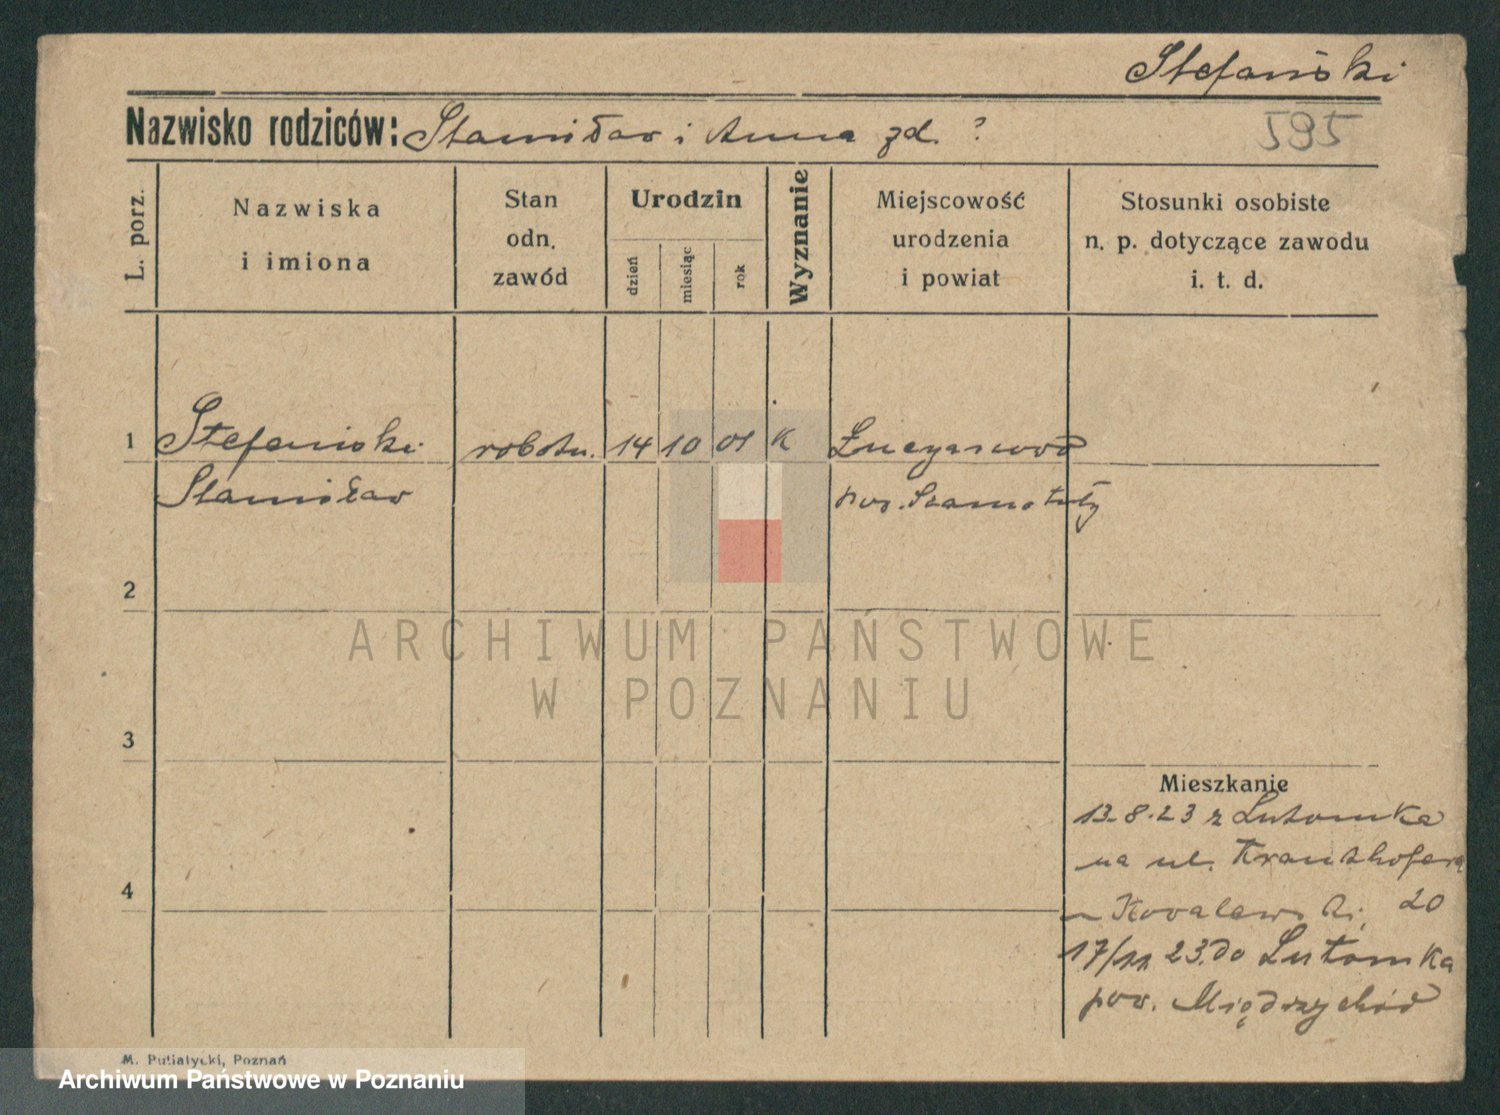 Stefański
Nazwisko rodziców: Stanisław i Anna zd. ?
595
L. porz.
Nazwiska
i imiona
Stan
odn.
zawód
Urodzin
dzień
miesiąc
rok
Wyznanie
Miejscowość
urodzenia
i powiat
Stosunki osobiste
n. p. dotyczące zawodu
i. t. d.
1 Stefański robotn. 14 10 01 K
Stanisław pow. Szamotuły
2
ARCHIWUM PAŃSTWOWE
W POZNANIU
3
Mieszkanie
13.8.23 z Lutomka
na ul. Kranthofera
u Kowalewski, 20
4
17/11 23. do Lutomka
pow. Międzychód
M. Putiatycki, Poznań
Archiwum Państwowe w Poznaniu